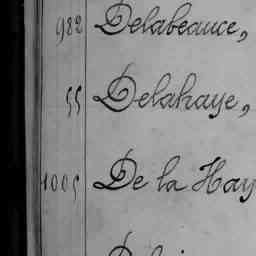 982 Delabeauce,
55 Delahaye,
1005 De la Hay